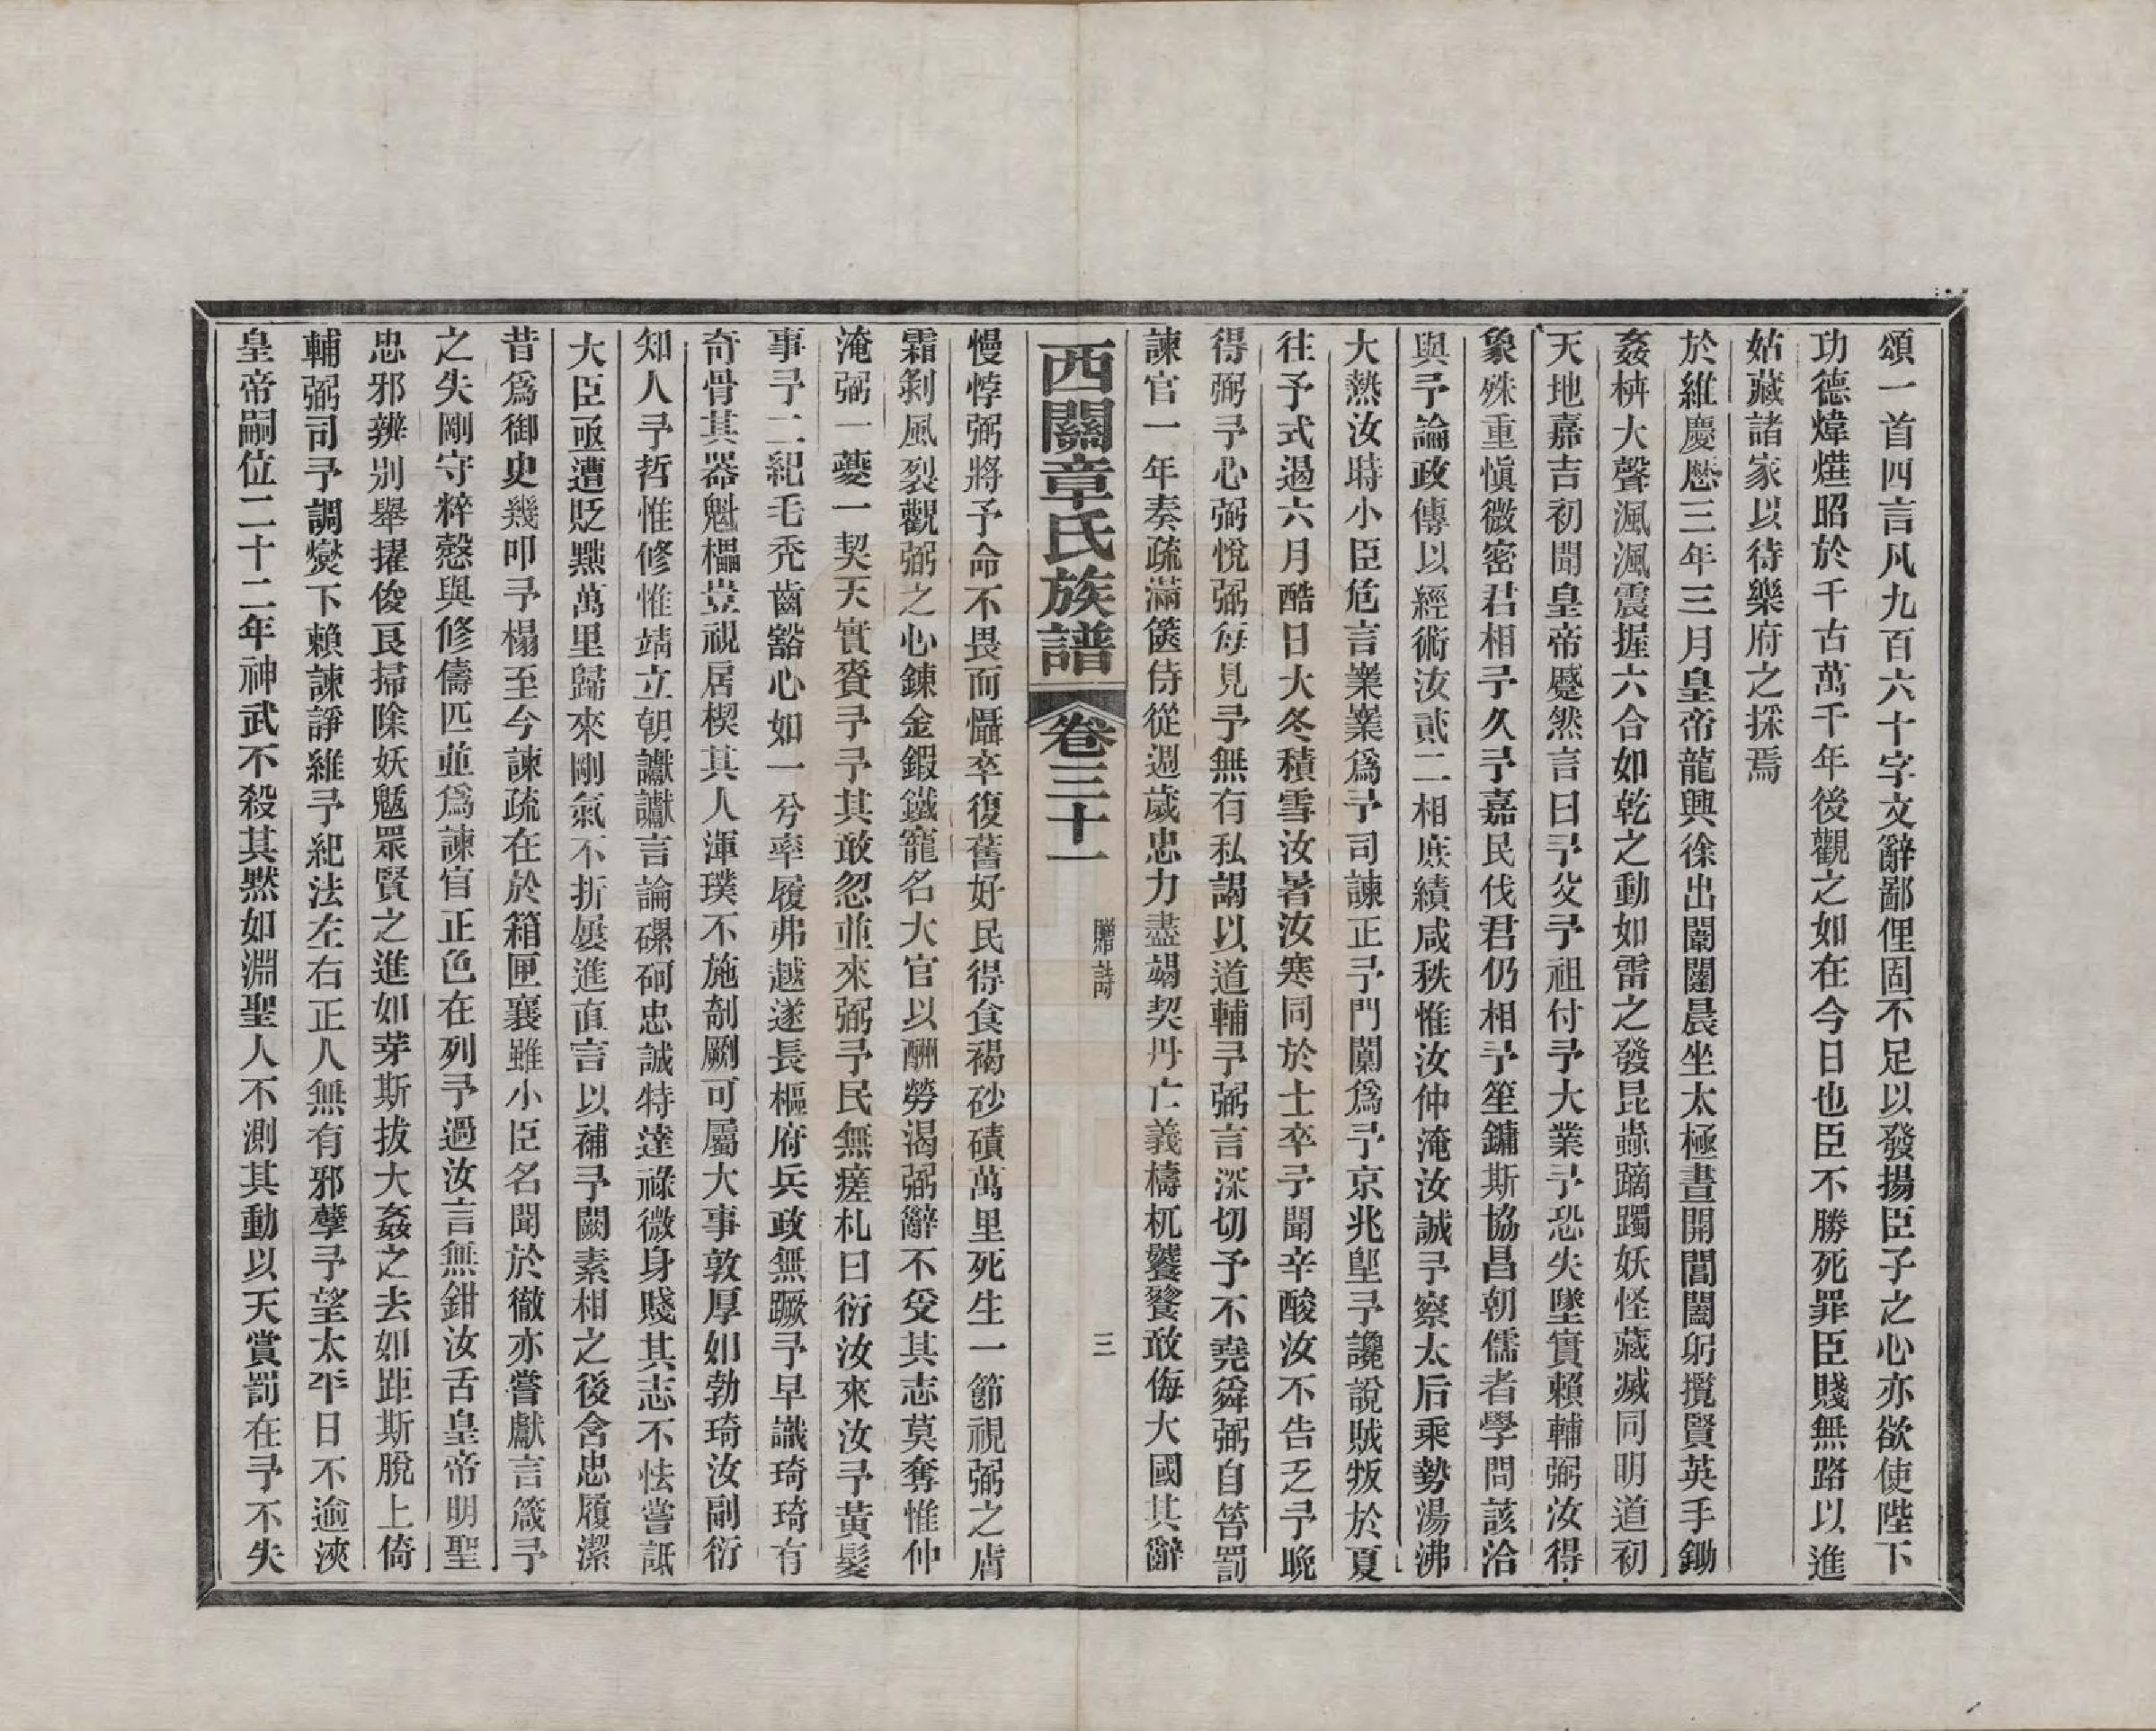 頌一首四言凡九百六十字文辭鄙俚固不足以發揚臣子之心亦欲使陛下
功德煒燁昭於千古萬千年後觀之如在今日也臣不勝死罪臣賤無路以進
姑藏諸家以待樂府之採焉
於維慶歷三年三月皇帝龍興徐出闈闥晨坐太極晝開閶闔躬攬賢英手鋤
姦枿大聲渢渢震搖六合如乾之動如雷之發昆蟲蹢躅妖怪藏滅同明道初
天地嘉吉初聞皇帝蹙然言曰予父予祖付予大業予恐失墜實賴輔弼汝得
象殊重愼微密君相予久予嘉民伐君仍相予笙鏞斯協昌朝儒者學問該洽
與予論政傳以經術汝貳二相庶績咸秩惟汝仲淹汝誠予察太后乘勢湯沸
大熱汝時小臣危言嶪嶪爲予司諫正予門闑爲予京兆堲予讒說賊叛於夏
往予式遏六月酷日大冬積雪汝暑汝寒同於士卒予聞辛酸汝不告乏予晚
得弼予心弼悅弼每見予無有私謁以道輔予弼言深切予不堯舜弼自笞罰
諫官一年奏疏滿篋侍從週歲忠力盡竭契丹亡義檮杌饕餮敢侮大國其辭
西關章氏族譜 卷三十一 贈詩 三
慢悖弼將予命不畏而懾卒復舊好民得食褐砂磧萬里死生一節視弼之膚
霜剝風裂觀弼之心鍊金鍛鐵寵名大官以酬勞渴弼辭不受其志莫奪惟仲
淹弼一夔一契天實賚予予其敢忽並來弼予民無瘥札曰衍汝來汝予黃髮
事予二紀毛禿齒豁心如一兮率履弗越遂長樞府兵政無蹶予早識琦琦有
奇骨其器魁櫑豈視扂楔其人渾璞不施剞劂可屬大事敦厚如勃琦汝副衍
知人予哲惟修惟靖立朝讞讞言論磥砢忠誠特達祿微身賤其志不怯嘗詆
大臣亟遭貶黜萬里歸來剛氣不折屢進直言以補予闕素相之後含忠履潔
昔爲御史幾叩予榻至今諫疏在於箱匣襄雖小臣名聞於徹亦嘗獻言箴予
之失剛守粹慤與修儔匹並爲諫官正色在列予過汝言無鉗汝舌皇帝明聖
忠邪辨別舉擢俊良掃除妖魃眾賢之進如茅斯拔大姦之去如距斯脫上倚
輔弼司予調燮下賴諫諍維予紀法左右正人無有邪孽予望太平日不逾浹
皇帝嗣位二十二年神武不殺其默如淵聖人不測其動以天賞罰在予不失